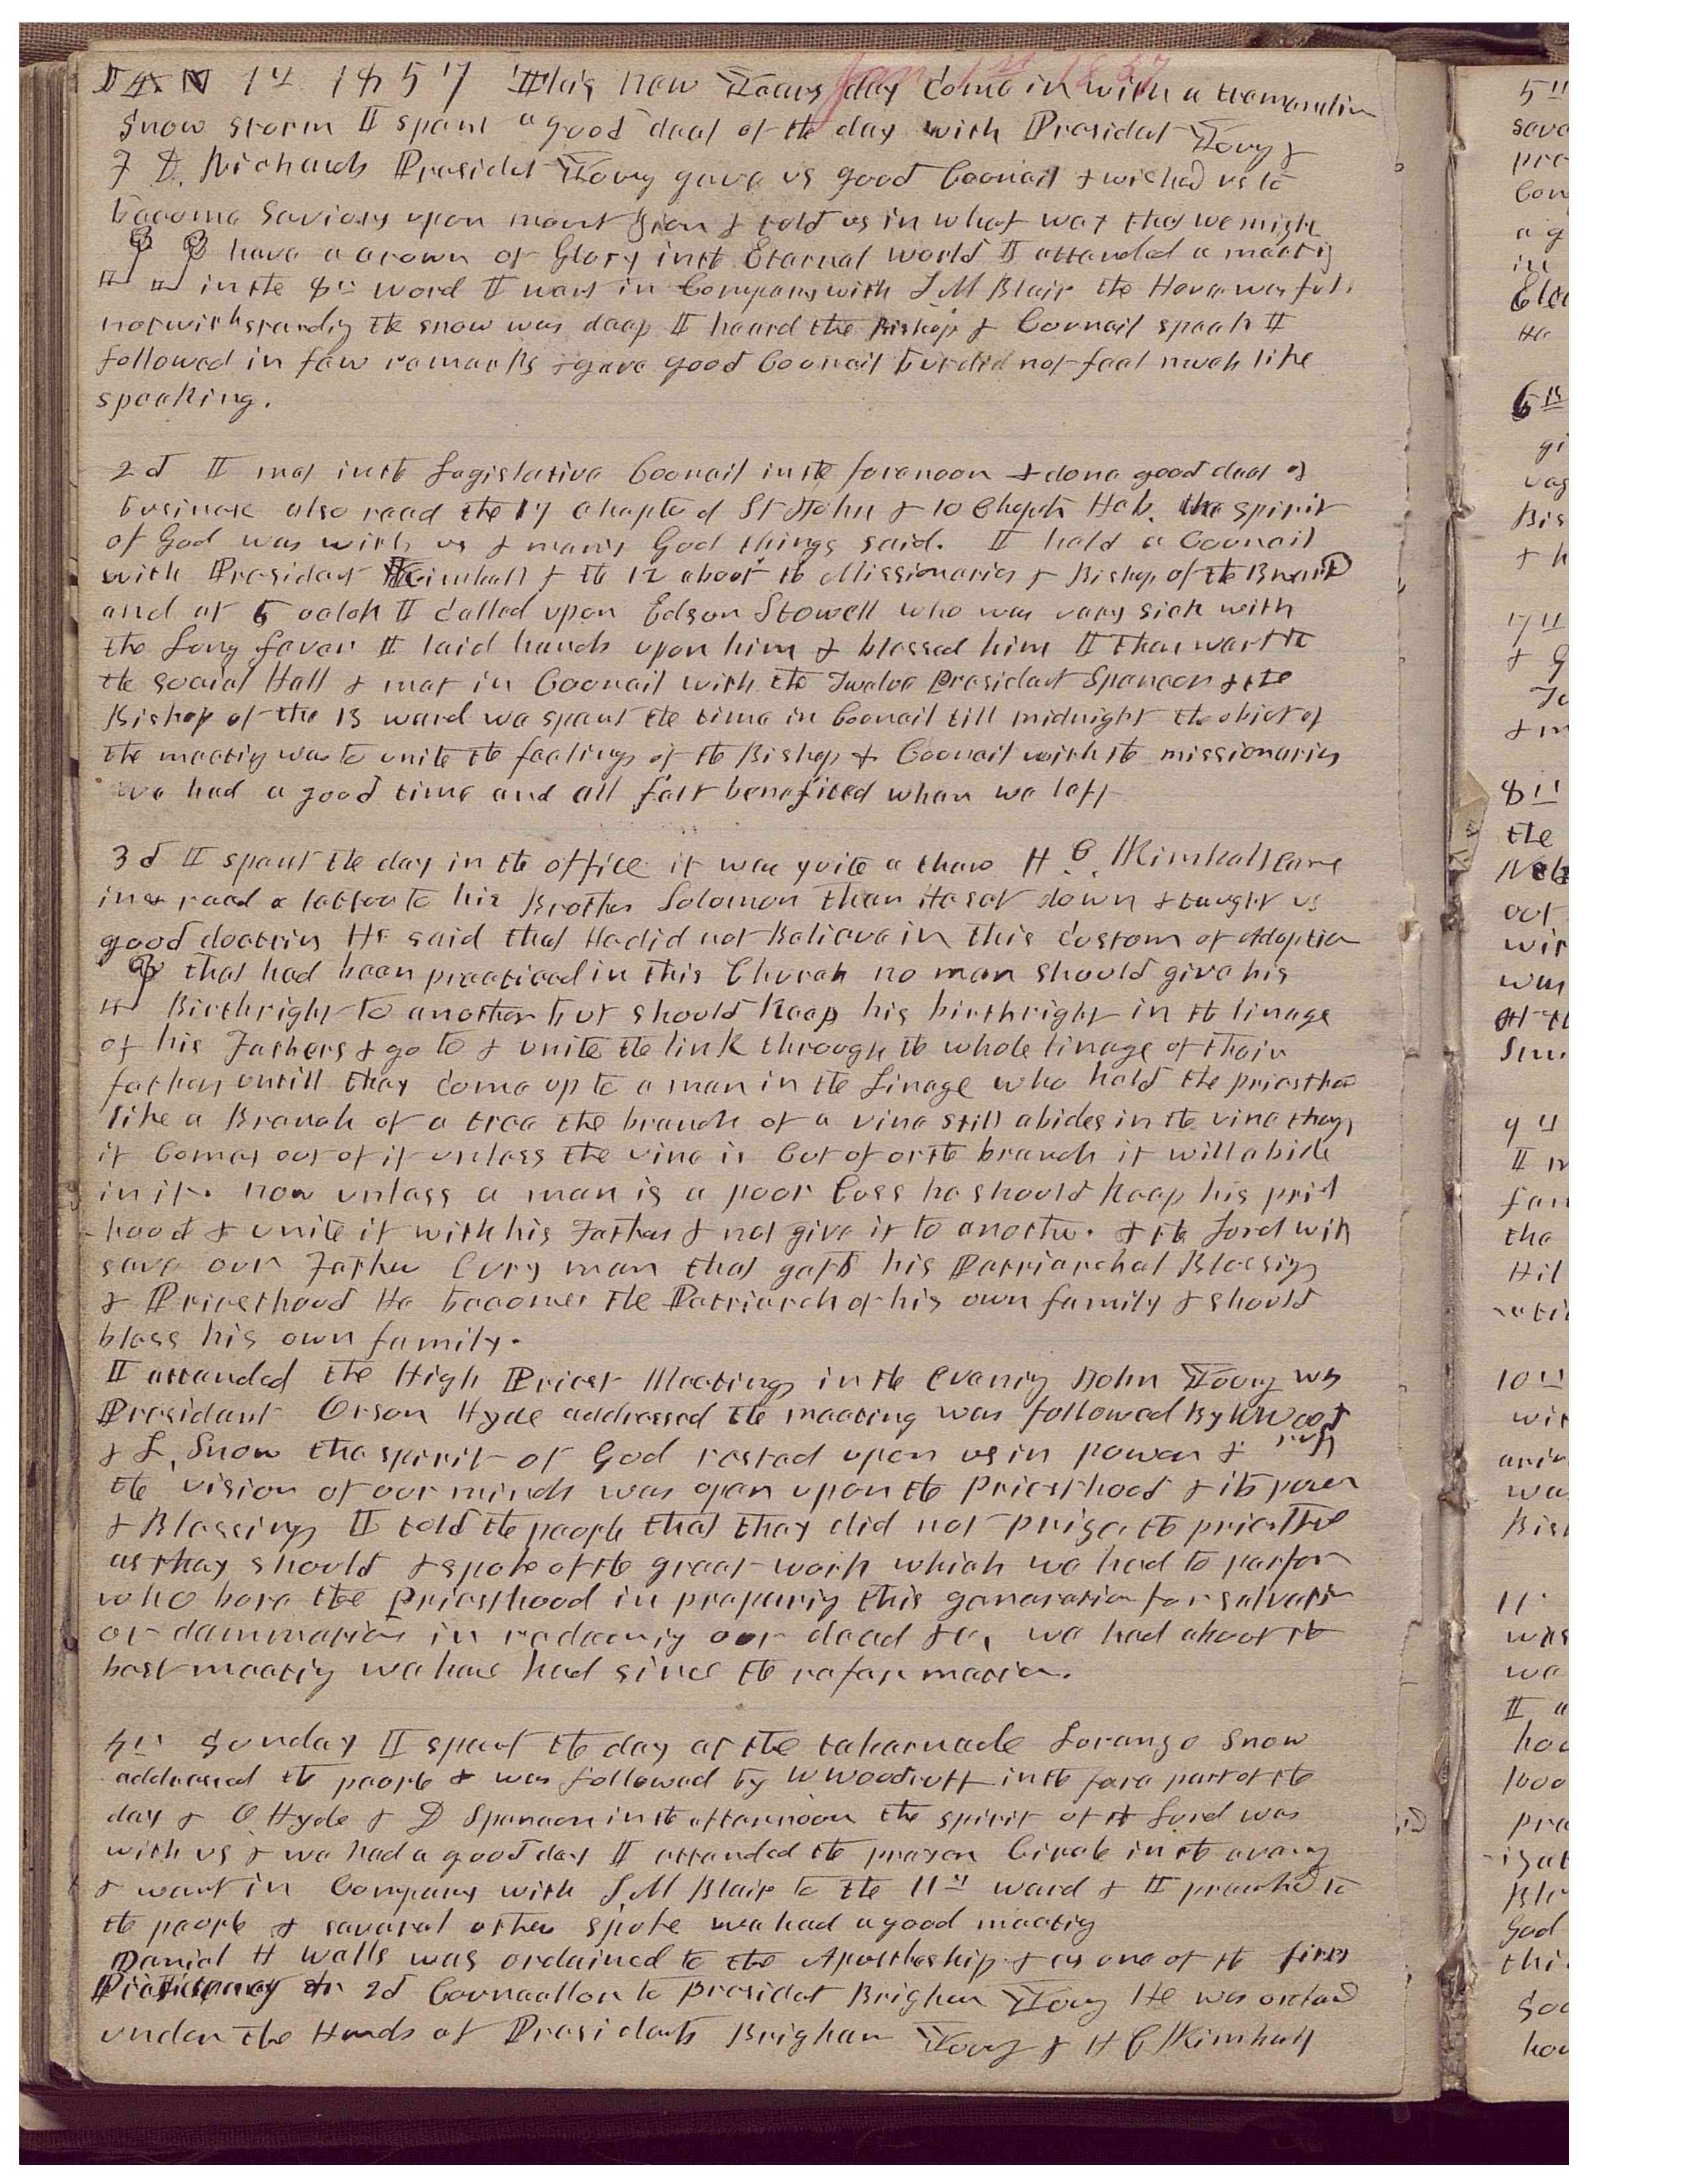 JAN 1st 1857 This New Years day Come in with a tremendius
Jan 1st 1857
snow storm I spent a good deal of the day with President Young &
F D. Richards President Young gave us good Council & wished us to
become Saviors upon mount Zion & told us in what way that we might
have a crown of Glory in the Eternal world I attended a meetig
in the 8th word I went in Company with S M Blair the House was full
notwithstandig the snow was deep I heard the Bishop & Council speak I
followed in few remarks & gave good Council but did not feel much like
speaking.
2d I met in the Legislative Council in the forenoon & done good deal of
business also read the 17 Chapter of St John & 10 Chaptr Heb. the spirit
of God was with us & many God things said. I held a Council
with President Kimball & the 12 about the Missionaries & Bishop of the 13 ward
and at 5 oclok I Called upon Edson Stowell who was very sick with
the Lung fever I laid hands upon him & blessed him I then went to
the Social Hall & met in Council with the Twelve President Spencer & the
Bishop of the 13 ward we spent the time in Council till midnight the object of
the meetig was to unite the feelings of the Bishop & Council with the missionaries
we had a good time and all felt benefited when we left
3d I spent the day in the office it was quite a thaw H. C. Kimball came
in & read a letter to his Brother Solomon then He sat down & taught us
good doctrin He said that He did not Believe in this Custom of Adoption
that had been practiced in this Church no man should give his
Birthright to another but should Keep his birthright in the linage
of his Fathers & go to & unite the link through the whole linage of their
fathers untill they come up to a man in the Linage who held the priesthood
like a Branch of a tree the branch of a vine still abides in the vine though
it Comes out of it unless the vine is Cut of or the branch it will abide
in it. now unless a man is a poor Cuss he should Keep his priest
hood & unite it with his Father & not give it to another. & the Lord will
save our Father Evry man that gets his Patriarchal Blessigs
& Priesthood He becomes the Patriarch of his own family & should
bless his own family.
I attended the High Priest Meetings in the evenig John Young was
President Orson Hyde addressed the meeting was followed By W Woodruff
& L. Snow the spirit of God rested upon us in power &
the vision of our minds was open upon the Priesthood & its power
& Blessings I told the people that they did not prize the priesthood
as they should & spoke of the great work which we had to perform
who bore the Priesthood in preparig this generation for salvation
or dammnation in redeemig our dead &c, we had about the
best meetig we have had since the reformation.
4th Sunday I spent the day at the tabernacle Lorenzo Snow
addressed the people & was followed by W Woodruff in the fore part of the
day & O Hyde & D Spencer in the afternoon the spirit of the Lord was
with us & we had a good day I attended the prayer Circle in the evenig
& went in Company with S M Blair to the 11th ward & I preached to
the people & several others spoke we had a good meetig
Daniel H Wells was ordained to the Apostleship & as one of the first
Presidency or 2d Councellor to President Brigham Young He was ordaind
under the Hands of Presidents Brigham Young & H C Kimball